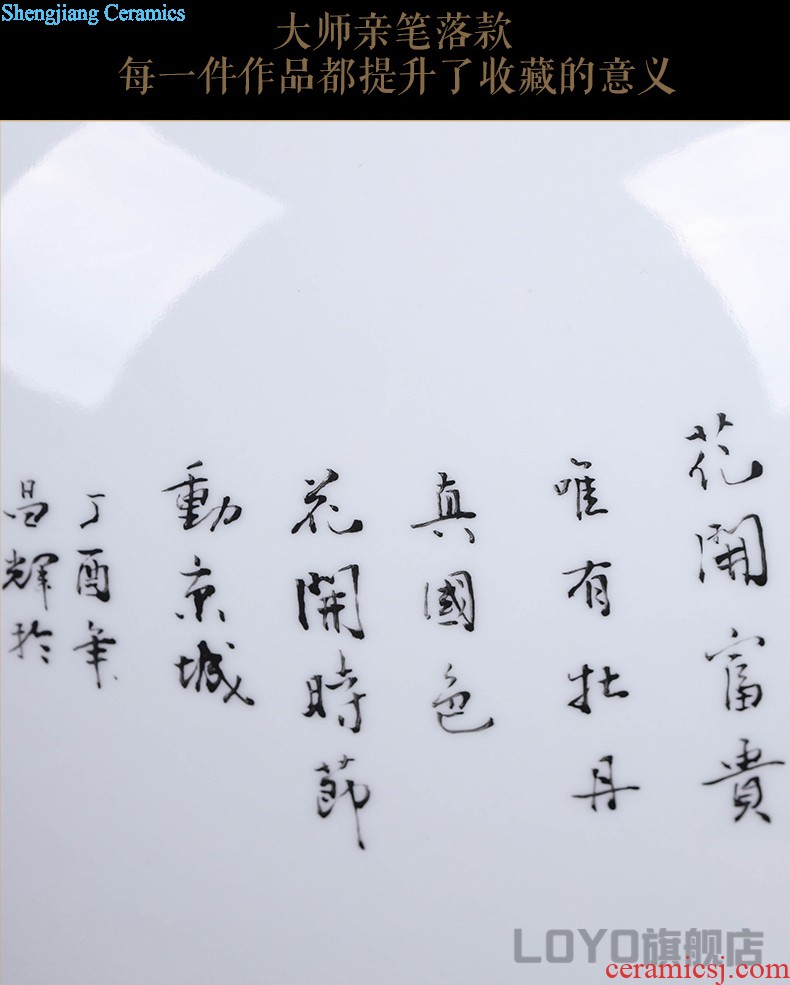 Shengjiang Ceramics
大师亲笔落款
每一件作品都提升了收藏的意义
花開富貴
唯有牡丹
真國色
花開時節
動京城
丁酉年
昌輝於
LOYO旗舰店
ceramicsj.com